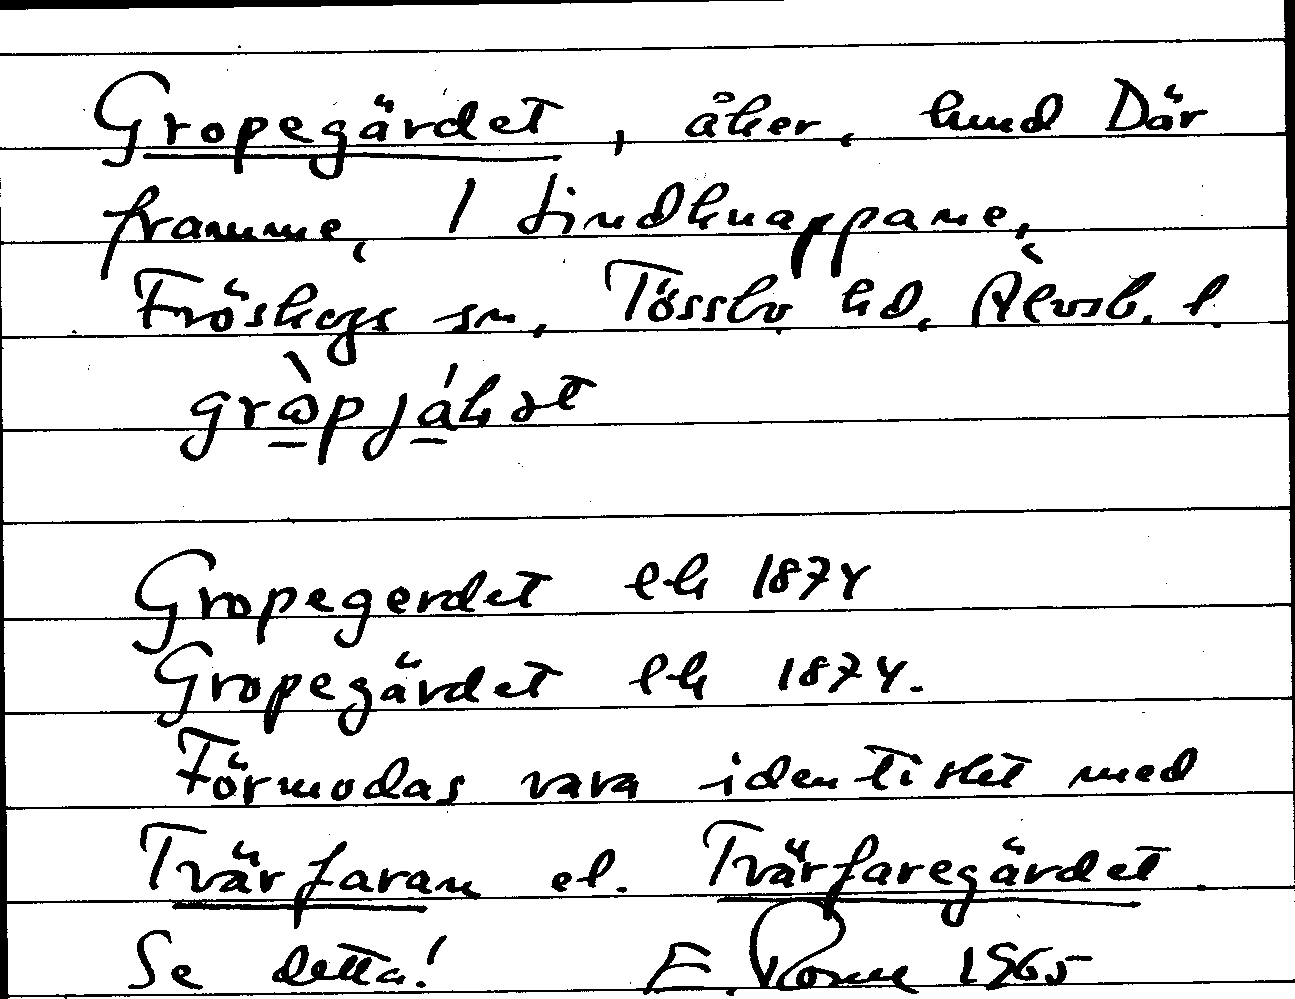 Gropegärdet, åker, hmd Där
framme, 1 Lindknappane,
Fröskogs sn, Tössbo hd, Älvsb. l.
Gropegerdet lk 1874
Gropegärdet lk 1874.
Förmodas vara identiskt med
Tvärfaran el. Tvärfaregärdet
Se detta! E. 1965